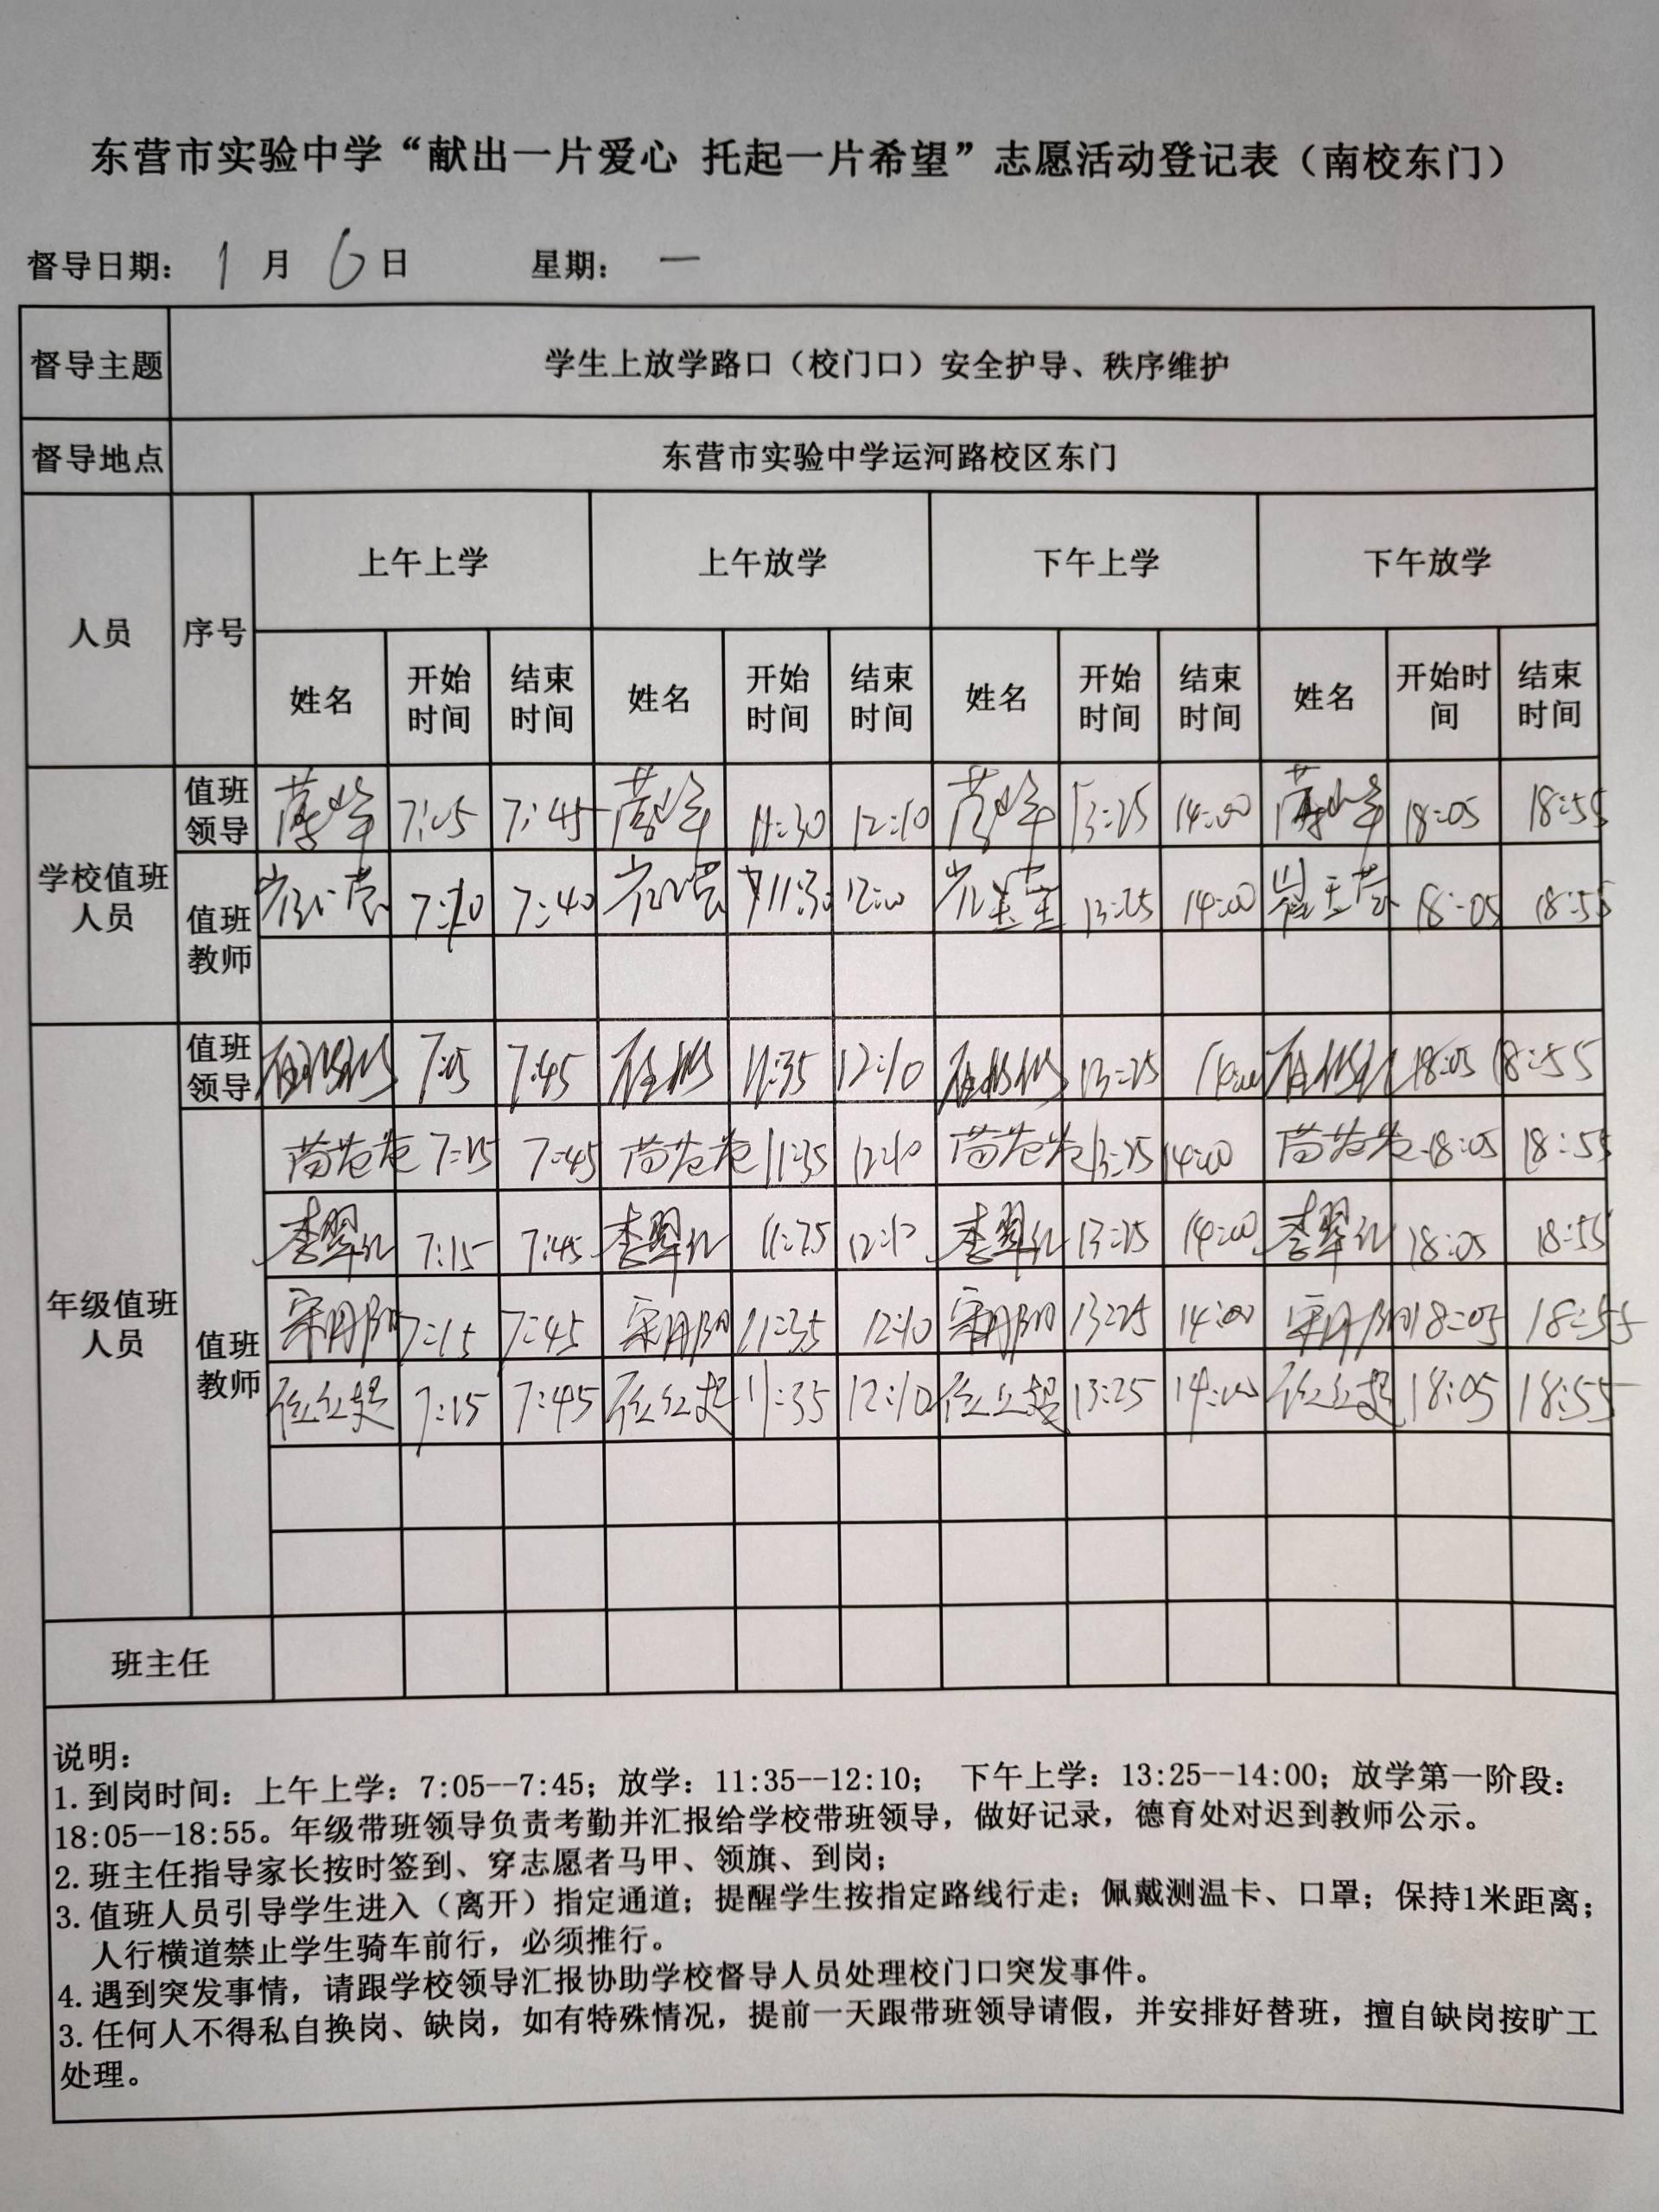 东营市实验中学“献出一片爱心 托起一片希望”志愿活动登记表（南校东门）
督导日期： 1 月 6 日 星期： 一
督导主题 学生上放学路口（校门口）安全护导、秩序维护
督导地点 东营市实验中学运河路校区东门
人员 序号 上午上学 上午放学 下午上学 下午放学
姓名 开始时间 结束时间 姓名 开始时间 结束时间 姓名 开始时间 结束时间 姓名 开始时间 结束时间
学校值班人员 值班领导 7:45 11:30 12:10 13:25 14:00 18:05 18:55
值班教师 7:40 11:30 13:25 14:00 崔玉荣 18:05 18:55
年级值班人员 值班领导 7:45 11:35 12:10 13:25 18:05 18:55
值班教师 7:15 7:45 11:35 12:10 13:25 14:00 18:05 18:55
李翠红 7:15 7:45 李翠红 12:10 李翠红 13:25 14:00 李翠红 18:05 18:55
宋丹阳 7:15 7:45 宋丹阳 11:35 12:10 宋丹阳 13:25 14:00 宋丹阳 18:05 18:55
7:15 7:45 11:35 12:10 13:25 14:00 18:05 18:55
班主任
说明：
1.到岗时间：上午上学：7:05--7:45；放学：11:35--12:10； 下午上学：13:25--14:00；放学第一阶段：
18:05--18:55。年级带班领导负责考勤并汇报给学校带班领导，做好记录，德育处对迟到教师公示。
2.班主任指导家长按时签到、穿志愿者马甲、领旗、到岗；
3.值班人员引导学生进入（离开）指定通道；提醒学生按指定路线行走；佩戴测温卡、口罩；保持1米距离；
人行横道禁止学生骑车前行，必须推行。
4.遇到突发事情，请跟学校领导汇报协助学校督导人员处理校门口突发事件。
3.任何人不得私自换岗、缺岗，如有特殊情况，提前一天跟带班领导请假，并安排好替班，擅自缺岗按旷工
处理。